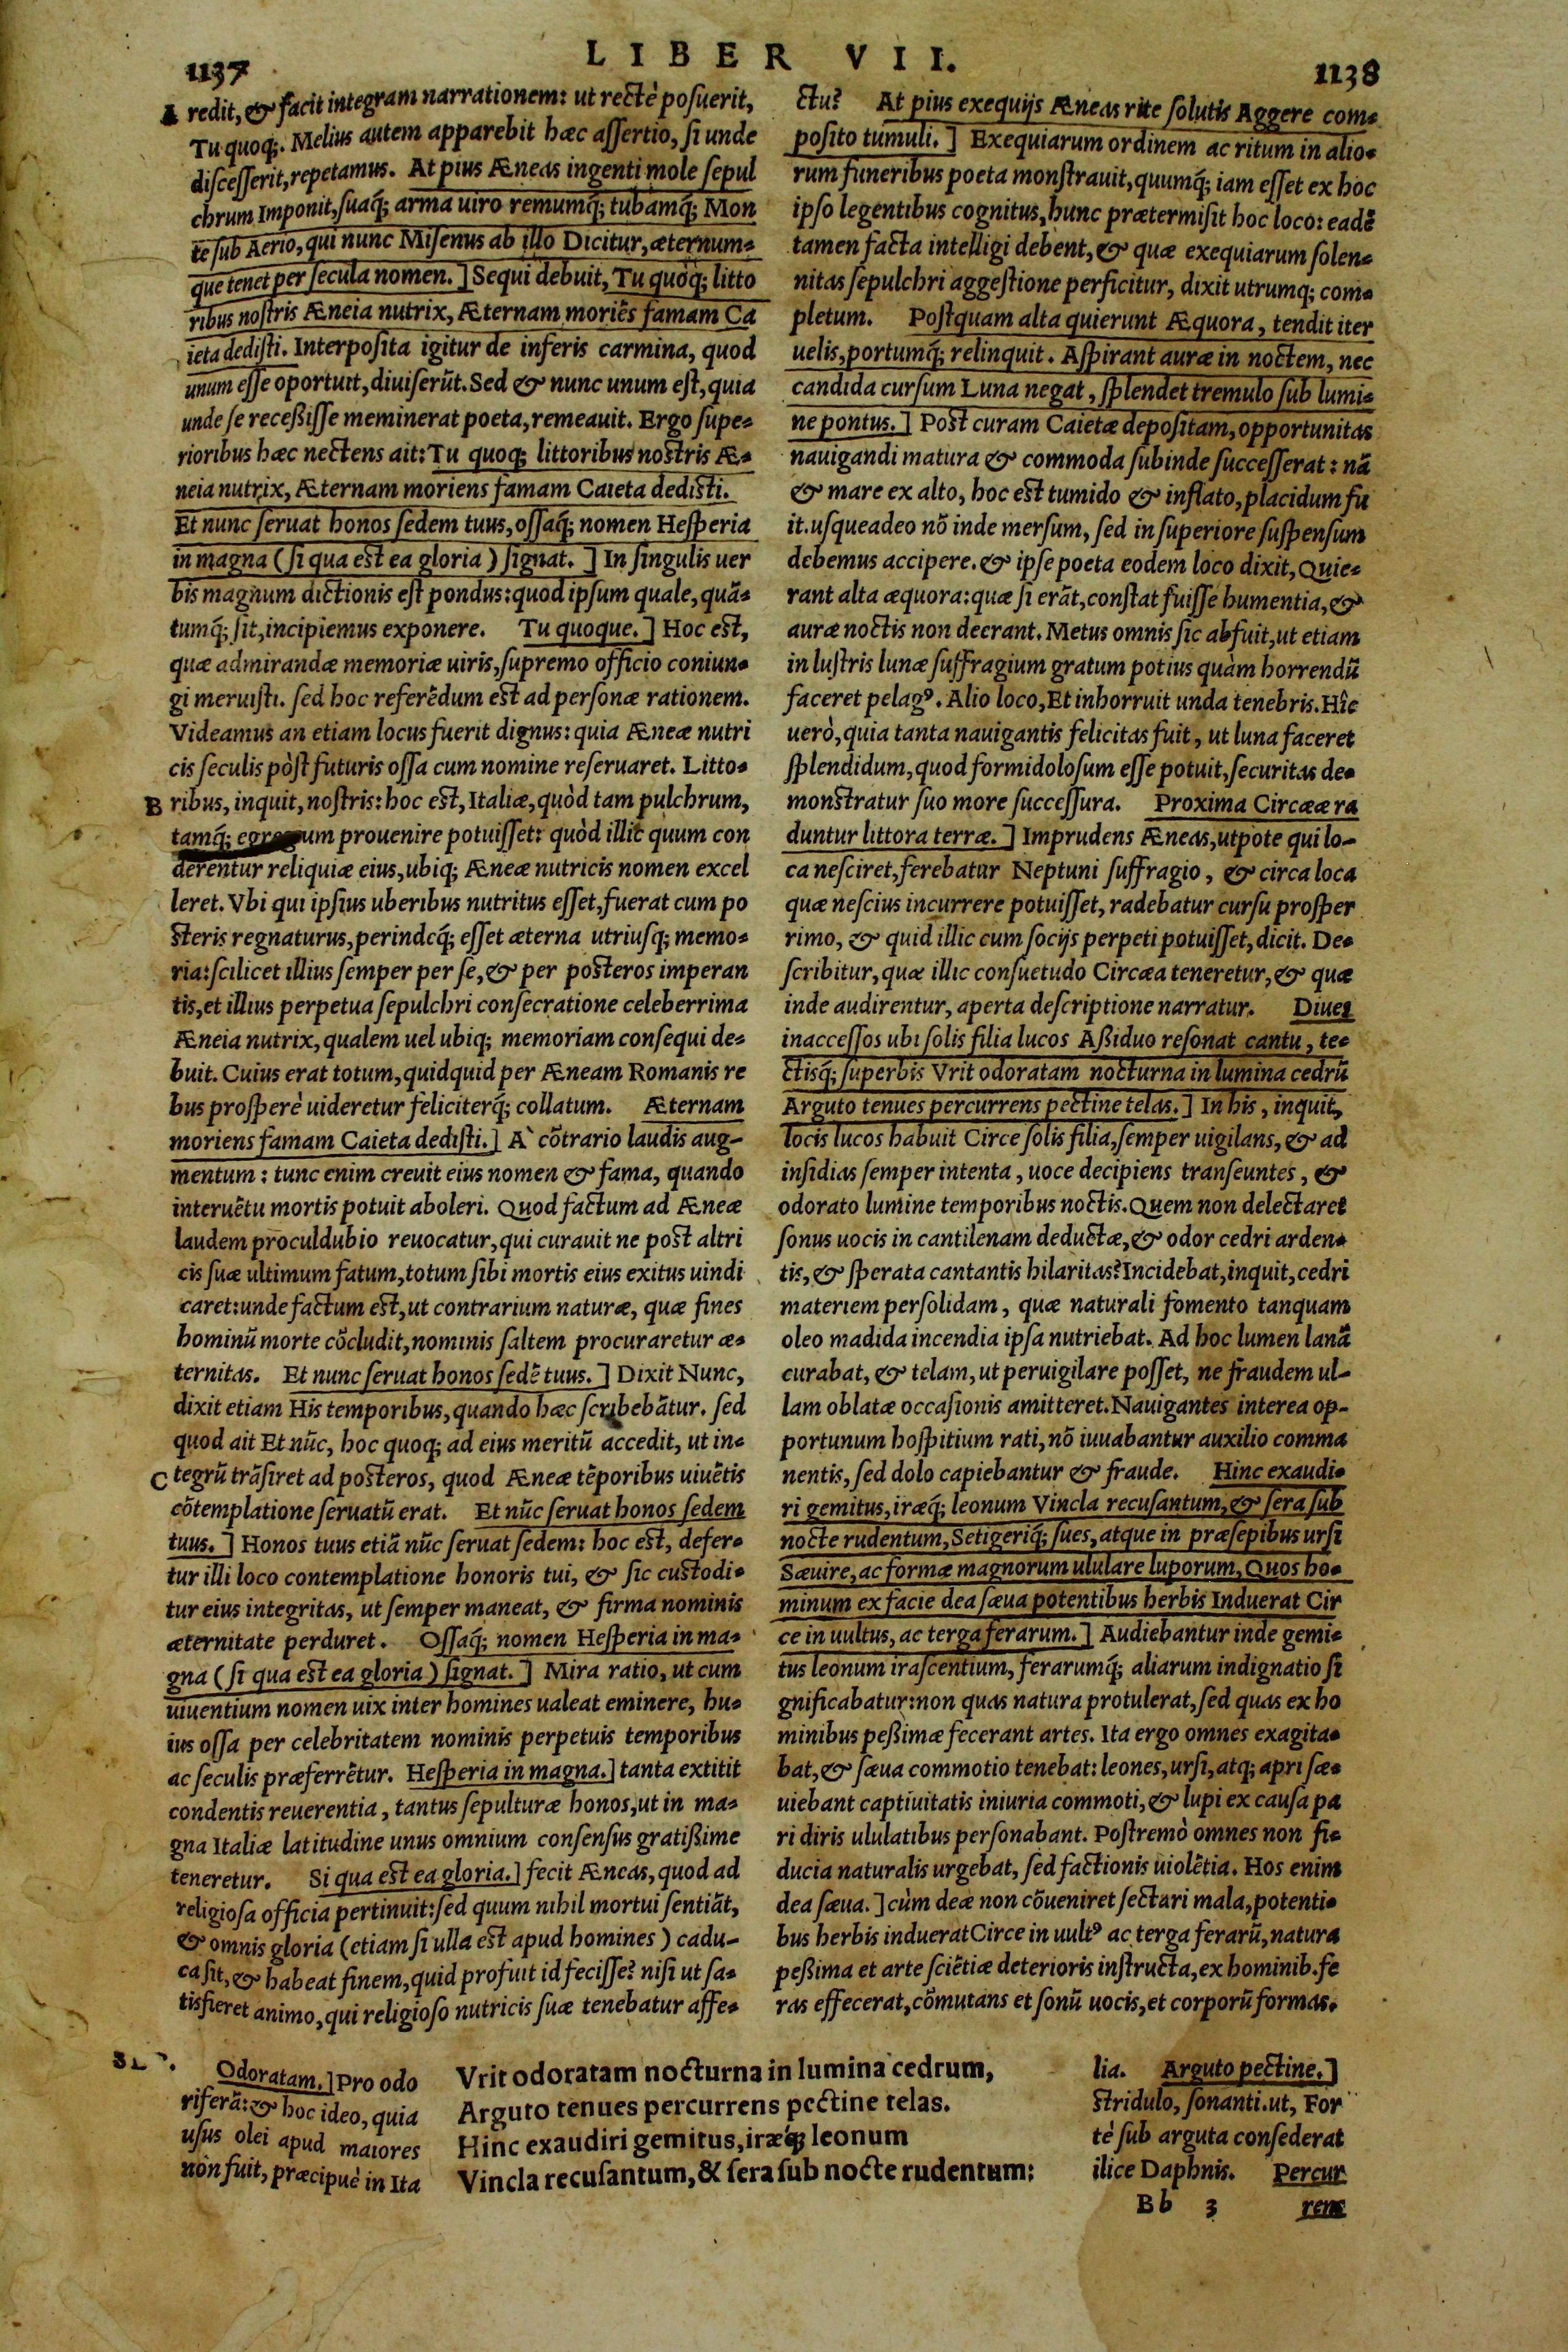 1137
LIBER VII.
1138
A redit, & facit integram narrationem: ut rectè posuerit,
Tu quoq;. Melius autem apparebit hæc assertio, si unde
discesserit, repetamus. At pius Æneas ingenti mole sepul
chrum Imponit, suaq́; arma uiro remumq́; tubamq́; Mon
te sub Aerio, qui nunc Misenus ab illo Dicitur, æternum-
que tenet per secula nomen.] Sequi debuit, Tu quoq; litto
ribus nostris Æneia nutrix, Æternam moriẽs famam Ca
ieta dedisti. Interposita igitur de inferis carmina, quod
unum esse oportuit, diuiserũt. Sed & nunc unum est, quia
unde se receßisse meminerat poeta, remeauit. Ergo supe-
rioribus hæc nectens ait: Tu quoq; littoribus nostris Æ-
neia nutrix, Æternam moriens famam Caieta dedisti.
Et nunc seruat honos sedem tuus, ossaq́; nomen Hesperia
in magna (si qua est ea gloria) signat.] In singulis uer
bis magnum dictionis est pondus: quod ipsum quale, quã-
tumq́; sit, incipiemus exponere. Tu quoque.] Hoc est,
quæ admirandæ memoriæ uiris, supremo officio coniun-
gi meruisti. sed hoc referẽdum est ad personæ rationem.
Videamus an etiam locus fuerit dignus: quia Æneæ nutri
cis seculis pòst futuris ossa cum nomine reseruaret. Litto-
B ribus, inquit, nostris: hoc est, Italiæ, quòd tam pulchrum,
tamq́; egregium prouenire potuisset: quòd illic quum con
derentur reliquiæ eius, ubiq; Æneæ nutricis nomen excel
leret. Vbi qui ipsius uberibus nutritus esset, fuerat cum po
steris regnaturus, perindeq́; esset æterna utriusq; memo-
ria: scilicet illius semper per se, & per posteros imperan
tis, et illius perpetua sepulchri consecratione celeberrima
Æneia nutrix, qualem uel ubiq; memoriam consequi de-
buit. Cuius erat totum, quidquid per Æneam Romanis re
bus prosperè uideretur feliciterq́; collatum. Æternam
moriens famam Caieta dedisti.] A` cõtrario laudis aug-
mentum: tunc enim creuit eius nomen & fama, quando
interuẽtu mortis potuit aboleri. Quod factum ad Æneæ
laudem proculdubio reuocatur, qui curauit ne post altri
cis suæ ultimum fatum, totum sibi mortis eius exitus uindi
caret: unde factum est, ut contrarium naturæ, quæ fines
hominũ morte cõcludit, nominis saltem procuraretur æ-
ternitas. Et nunc seruat honos sedẽ tuus.] Dixit Nunc,
dixit etiam His temporibus, quando hæc scribebãtur. sed
quod ait Et nũc, hoc quoq; ad eius meritũ accedit, ut in-
C tegrũ trãsiret ad posteros, quod Æneæ tẽporibus uiuẽtis
cõtemplatione seruatũ erat. Et nũc seruat honos sedem
tuus.] Honos tuus etiã nũc seruat sedem: hoc est, defer-
tur illi loco contemplatione honoris tui, & sic custodi-
tur eius integritas, ut semper maneat, & firma nominis
æternitate perduret. Ossaq́; nomen Hesperia in ma-
gna (si qua est ea gloria) signat.] Mira ratio, ut cum
uiuentium nomen uix inter homines ualeat eminere, hu-
ius ossa per celebritatem nominis perpetuis temporibus
ac seculis præferrẽtur. Hesperia in magna.] tanta extitit
condentis reuerentia, tantus sepulturæ honos, ut in ma-
gna Italiæ latitudine unus omnium consensus gratißime
teneretur. Si qua est ea gloria.] fecit Æneas, quod ad
religiosa officia pertinuit: sed quum nihil mortui sentiãt,
& omnis gloria (etiam si ulla est apud homines) cadu-
ca sit, & habeat finem, quid profuit id fecisse? nisi ut sa-
tisfieret animo, qui religioso nutricis suæ tenebatur affe-
ctu? At pius exequijs Æneas rite solutis Aggere com-
posito tumuli.] Exequiarum ordinem ac ritum in alio-
rum funeribus poeta monstrauit, quumq́; iam esset ex hoc
ipso legentibus cognitus, hunc prætermisit hoc loco: eadẽ
tamen facta intelligi debent, & quæ exequiarum solen-
nitas sepulchri aggestione perficitur, dixit utrumq; com-
pletum. Postquam alta quierunt Æquora, tendit iter
uelis, portumq́; relinquit. Aspirant auræ in noctem, nec
candida cursum Luna negat, splendet tremulo sub lumi-
ne pontus.] Post curam Caietæ depositam, opportunitas
nauigandi matura & commoda subinde successerat: nã
& mare ex alto, hoc est tumido & inflato, placidum fu
it. usqueadeo nõ inde mersum, sed in superiore suspensum
debemus accipere. & ipse poeta eodem loco dixit, Quie-
rant alta æquora: quæ si erãt, constat fuisse humentia, &
auræ noctis non deerant. Metus omnis sic abfuit, ut etiam
in lustris lunæ suffragium gratum potius quàm horrendũ
faceret pelagꝰ. Alio loco, Et inhorruit unda tenebris. Hîc
uerò, quia tanta nauigantis felicitas fuit, ut luna faceret
splendidum, quod formidolosum esse potuit, securitas de-
monstratur suo more successura. Proxima Circææ ra
duntur littora terræ.] Imprudens Æneas, utpote qui lo-
ca nesciret, ferebatur Neptuni suffragio, & circa loca
quæ nescius incurrere potuisset, radebatur cursu prosper
rimo, & quid illic cum socijs perpeti potuisset, dicit. De-
scribitur, quæ illic consuetudo Circæa teneretur, & quæ
inde audirentur, aperta descriptione narratur. Diues
inaccessos ubi solis filia lucos Aßiduo resonat cantu, te-
ctisq́; superbis Vrit odoratam nocturna in lumina cedrũ
Arguto tenues percurrens pectine telas.] In his, inquit,
locis lucos habuit Circe solis filia, semper uigilans, & ad
insidias semper intenta, uoce decipiens transeuntes, &
odorato lumine temporibus noctis. Quem non delectaret
sonus uocis in cantilenam deductæ, & odor cedri arden-
tis, & sperata cantantis hilaritas? Incidebat, inquit, cedri
materiem persolidam, quæ naturali fomento tanquam
oleo madida incendia ipsa nutriebat. Ad hoc lumen lanã
curabat, & telam, ut peruigilare posset, ne fraudem ul-
lam oblatæ occasionis amitteret. Nauigantes interea op-
portunum hospitium rati, nõ iuuabantur auxilio comma
nentis, sed dolo capiebantur & fraude. Hinc exaudi-
ri gemitus, iræq́; leonum Vincla recusantum, & sera sub
nocte rudentum, Setigeriq́; sues, atque in præsepibus ursi
Sæuire, ac formæ magnorum ululare luporum, Quos ho-
minum ex facie dea sæua potentibus herbis Induerat Cir
ce in uultus, ac terga ferarum.] Audiebantur inde gemi-
tus leonum irascentium, ferarumq́; aliarum indignatio si
gnificabatur: non quas natura protulerat, sed quas ex ho
minibus peßimæ fecerant artes. Ita ergo omnes exagita-
bat, & sæua commotio tenebat: leones, ursi, atq; apri sæ-
uiebant captiuitatis iniuria commoti, & lupi ex causa pa
ri diris ululatibus personabant. Postremò omnes non fi-
ducia naturalis urgebat, sed factionis uiolẽtia. Hos enim
dea sæua.] cùm deæ non cõueniret sectari mala, potenti-
bus herbis induerat Circe in uultꝰ ac terga ferarũ, natura
peßima et arte sciẽtiæ deterioris instructa, ex hominib. fe
ras effecerat, cõmutans et sonũ uocis, et corporũ formas.
Odoratam.] Pro odo
riferã: & hoc ideo, quia
usus olei apud maiores
non fuit, præcipuè in Ita
Vrit odoratam nocturna in lumina cedrum,
Arguto tenues percurrens pectine telas.
Hinc exaudiri gemitus, iræq́; leonum
Vincla recusantum, & sera sub nocte rudentum:
lia. Arguto pectine.]
Stridulo, sonanti. ut, For
tè sub arguta consederat
ilice Daphnis. Percur
Bb 3 rens